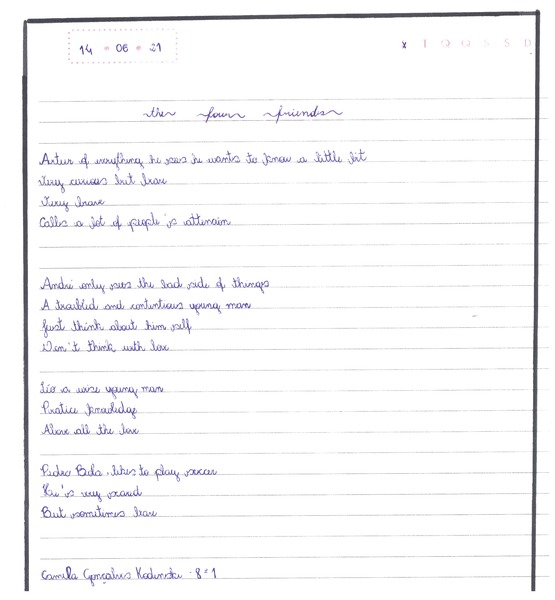 14 06 21
x T Q Q S S D
the four friends
Artur of everything he sees he wants to know a little bit
Very curious but brave
Very brave
Calls a lot of people's attenain
André only sees the bad side of things
A troubled and contentious young man
Just think about him self
Don't think with love
Léo a wise young man
Pratice knowledge
Above all the love
Pedro Bala, likes to play soccer
He's very scared
But sometimes brave
Camila Gonçalves - 8º1